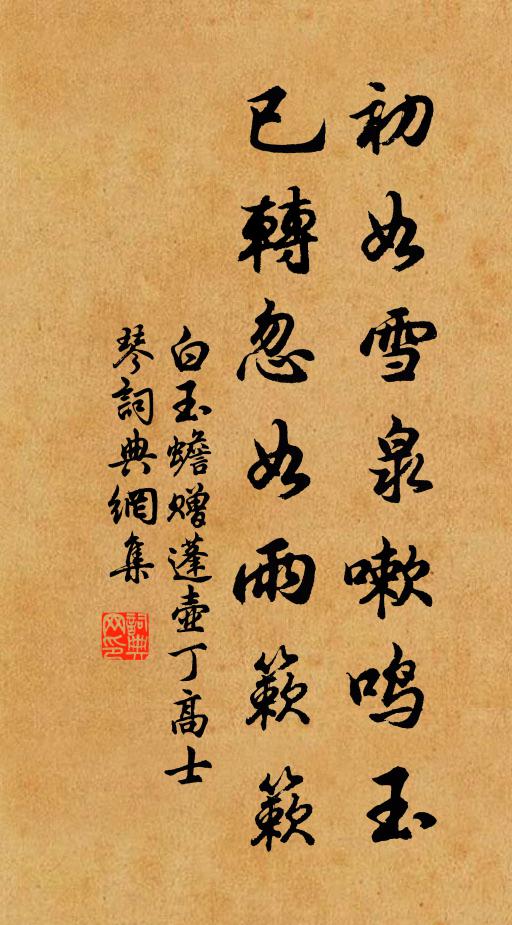 初如雪泉嗽鸣玉
已轉忽如雨簌簌
白玉蟾赠蓬壺丁高士
琴詞典網集
詞典网印